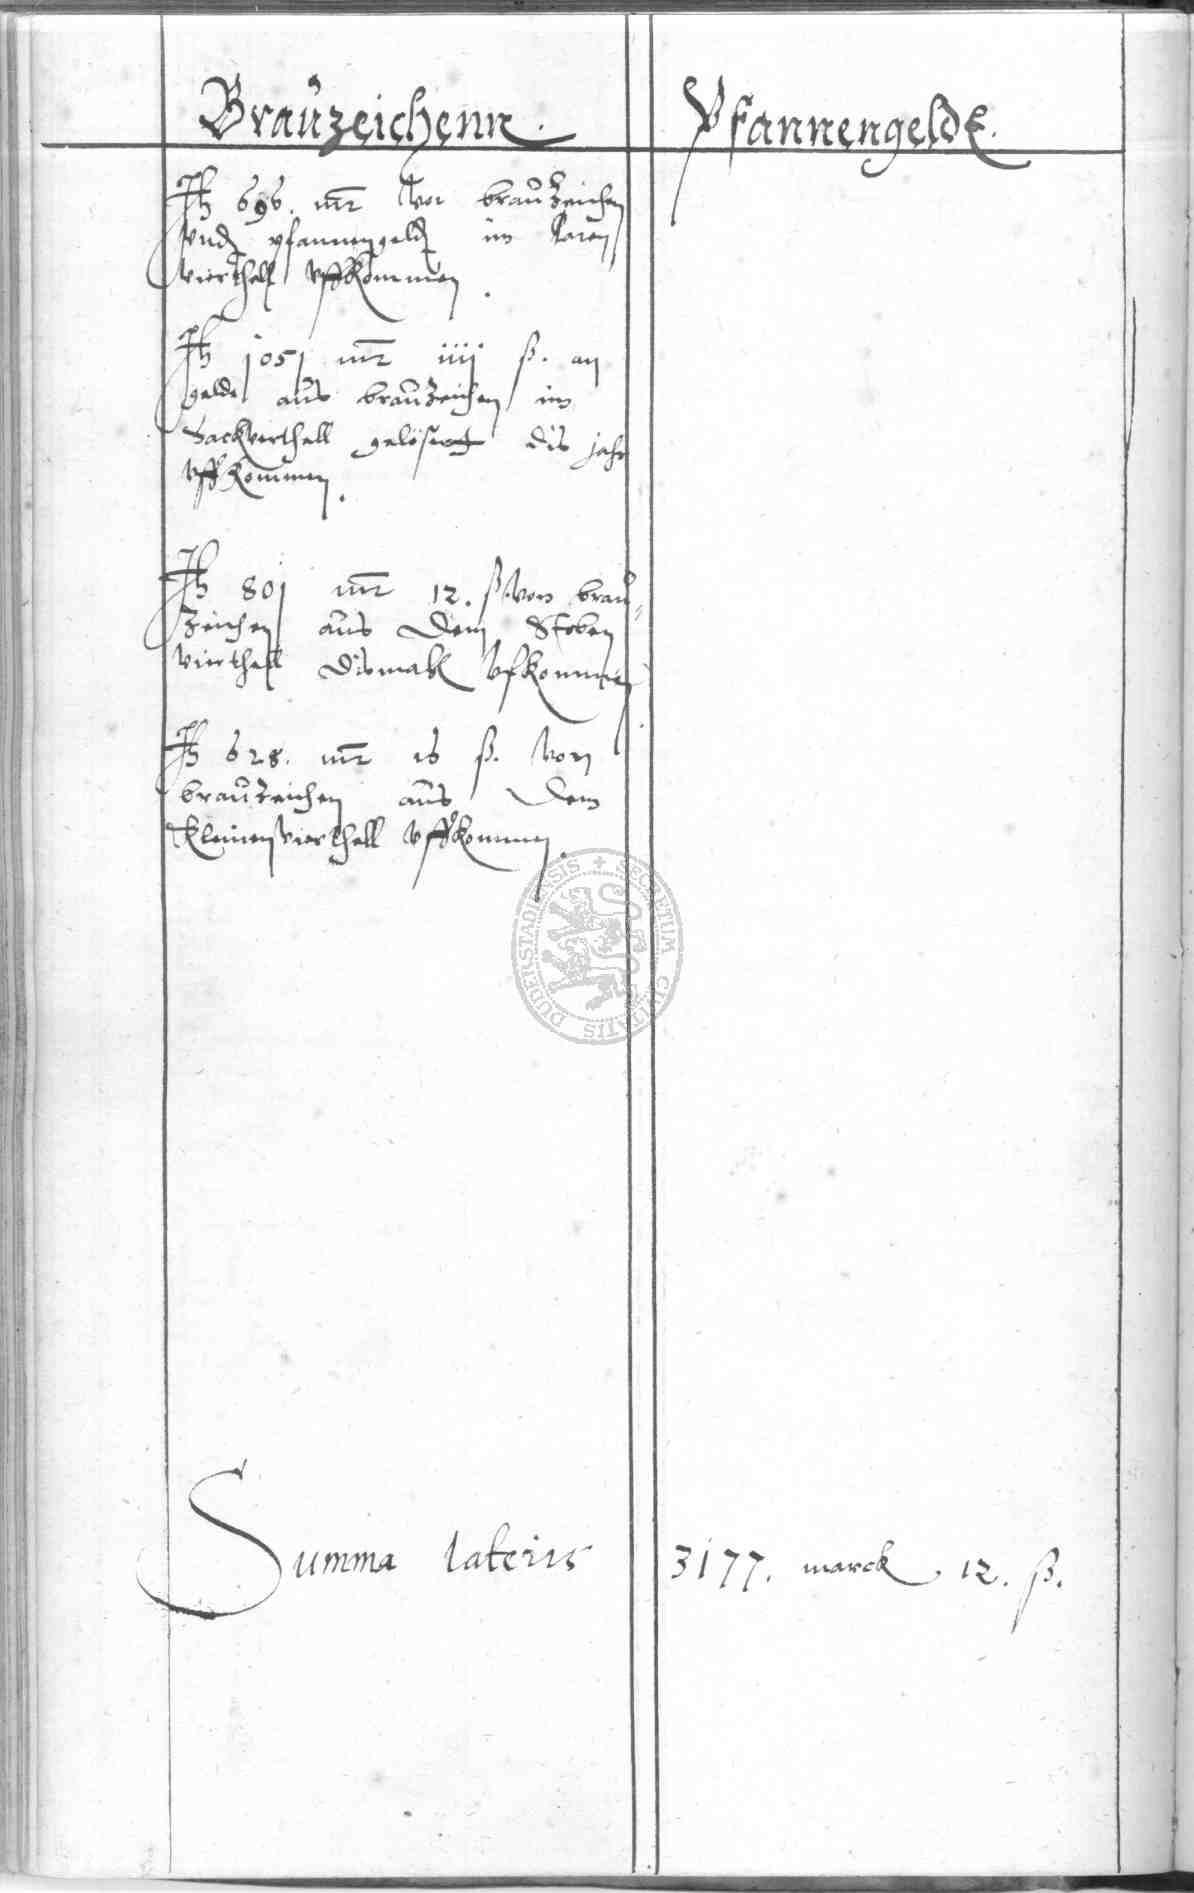 Brauzeichenn. Pfannengelde.
It 696. mr vor brauzeichen
vnd pfannengeld im
vierthell vffkommen.
It 1051 mr iiij ß. an
gelde aus brauzeichen im
Sackverthell gelöset dis jahr
vffkommen.
It 801 mr 12. ß. von brau-
zeichen aus dem Stoben
vierthell dismahl vfkommen.
It 628. mr 16 ß. von
brauzeichen aus dem
kleinen vierthell vffkommen.
SECRETUM CIVITATIS DUDERSTADIENSIS
Summa lateris 3177. marck 12. ß.